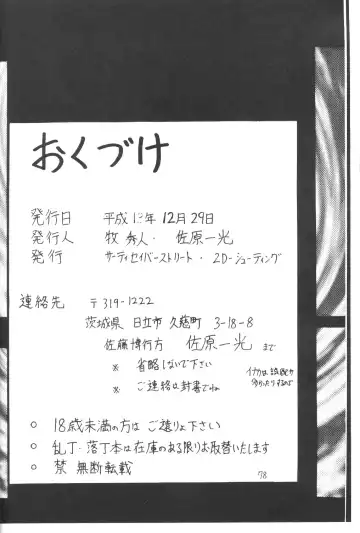 おくづけ
発行日 平成13年12月29日
発行人 牧 秀人・佐原一光
発行 サーティセイバーストリート・2D-シューティング
連絡先 〒319-1222
茨城県 日立市 久慈町 3-18-8
佐藤博行方 佐原一光 まで
※ 省略しないで下さい
※ ご連絡は封書でね
○ 18歳未満の方は ご遠りょ下さい
○ 乱丁・落丁本は在庫のある限りお取替いたします
○ 禁 無断転載
78